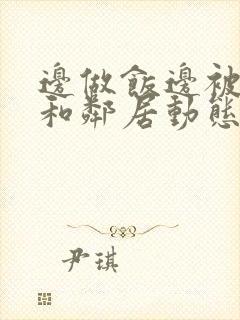 邊做飯邊被
和鄰居動態
尹琪